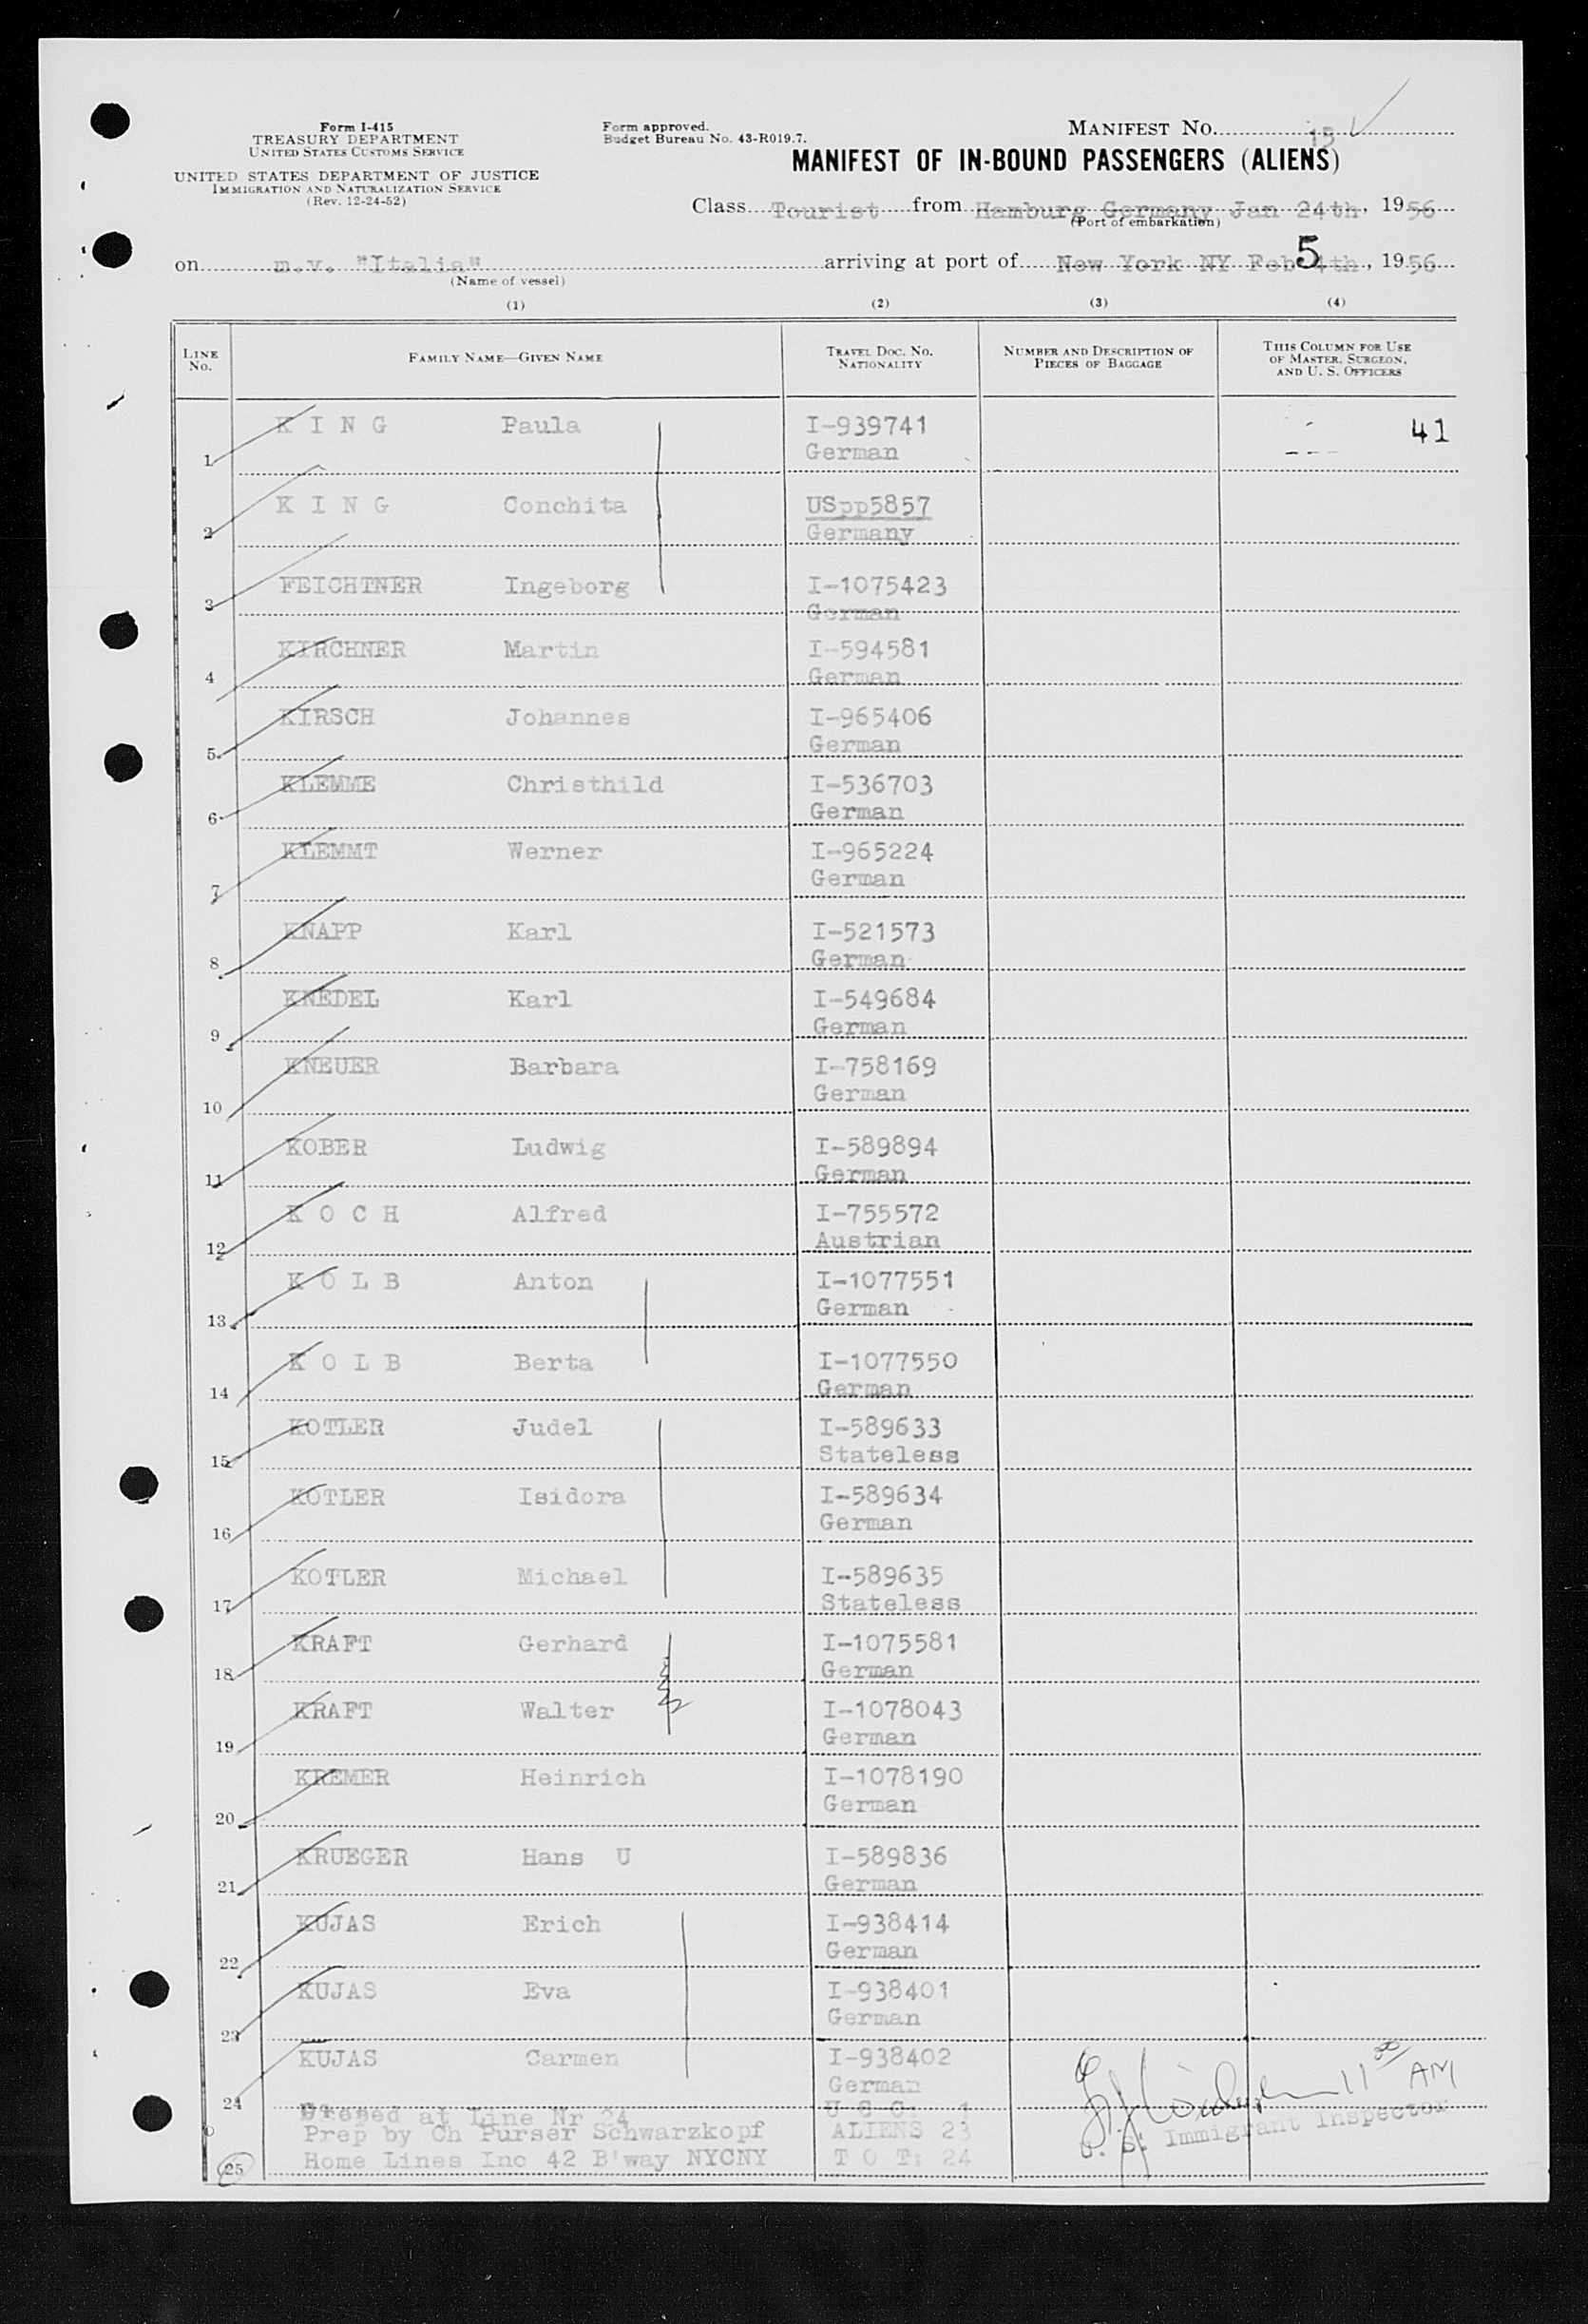 Form I-415
TREASURY DEPARTMENT
UNITED STATES CUSTOMS SERVICE
UNITED STATES DEPARTMENT OF JUSTICE
IMMIGRATION AND NATURALIZATION SERVICE
(Rev. 12-24-52)
Form approved.
Budget Bureau No. 43-R019.7.
MANIFEST NO. 15
MANIFEST OF IN-BOUND PASSENGERS (ALIENS)
Class Tourist from Hamburg Germany Jan 24th, 1956
(Port of embarkation)
on m.v. "Italia" arriving at port of New York NY Feb 5 4th, 1956
(Name of vessel)
(1) (2) (3) (4)
LINE NO. FAMILY NAME—GIVEN NAME TRAVEL DOC. NO. NATIONALITY NUMBER AND DESCRIPTION OF PIECES OF BAGGAGE THIS COLUMN FOR USE OF MASTER, SURGEON, AND U. S. OFFICERS
1 K I N G Paula I-939741 41
German
2 K I N G Conchita USpp5857
Germany
3 FEICHTNER Ingeborg I-1075423
German
4 KIRCHNER Martin I-594581
German
5 KIRSCH Johannes I-965406
German
6 KLEMME Christhild I-536703
German
7 KLEMMT Werner I-965224
German
8 KNAPP Karl I-521573
German
9 KNEDEL Karl I-549684
German
10 KNEUER Barbara I-758169
German
11 KOBER Ludwig I-589894
German
12 K O C H Alfred I-755572
Austrian
13 K O L B Anton I-1077551
German
14 K O L B Berta I-1077550
German
15 KOTLER Judel I-589633
Stateless
16 KOTLER Isidora I-589634
German
17 KOTLER Michael I-589635
Stateless
18 KRAFT Gerhard I-1075581
German
19 KRAFT Walter I-1078043
German
20 KREMER Heinrich I-1078190
German
21 KRUEGER Hans U I-589836
German
22 KUJAS Erich I-938414
German
23 KUJAS Eva I-938401
German
24 KUJAS Carmen I-938402
German
11 00 AM
at Line Nr 24 U S C: 1
Prep by Ch Purser Schwarzkopf ALIENS 23
U. S. Immigrant Inspector
25 Home Lines Inc 42 B'way NYCNY T O T: 24